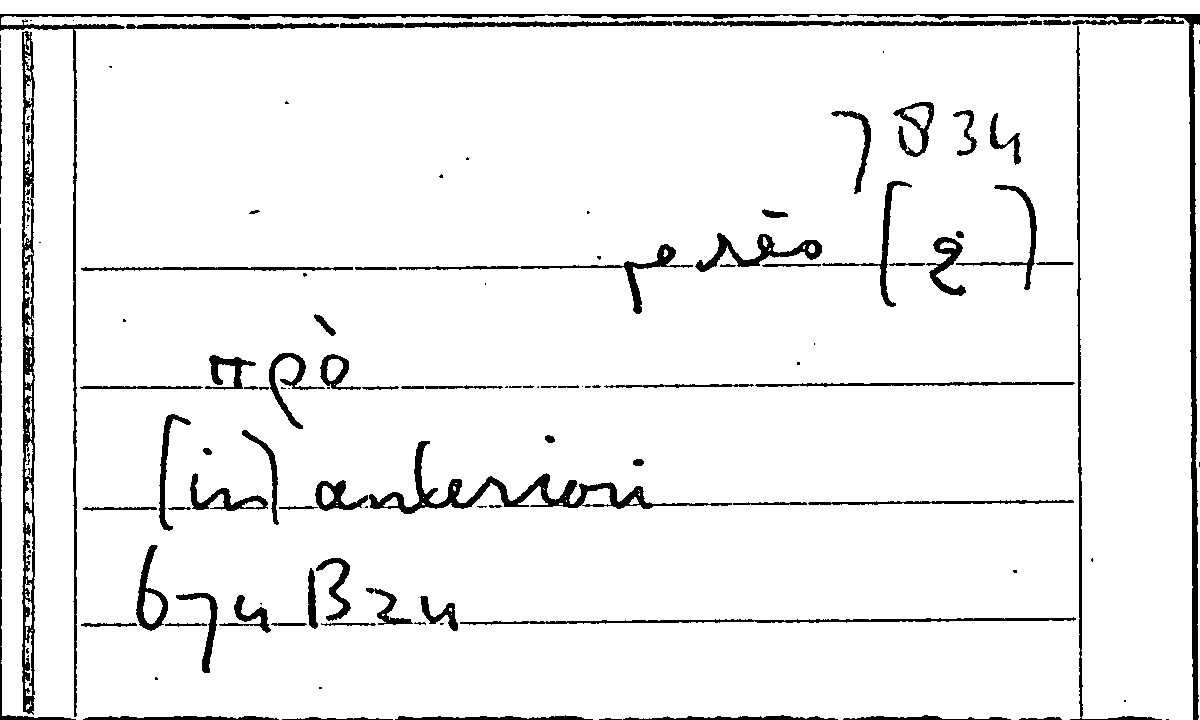 7834
(2)
πρὸ
(in) anteriori
674 B24